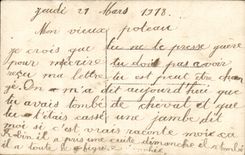 Jeudi 21 Mars 1918.
Mon vieux poteau
Je crois que tu ne te presse guère
pour m'écrire tu dois pas avoir
reçu ma lettre tu est peut être chan
gé. On m'a dit aujourd'hui que
tu avais tombé de cheval et que
tu t'étais cassé une jambe dit
moi si c'est vrais raconte moi ça
il a pas une cuite dimanche
il a toute le